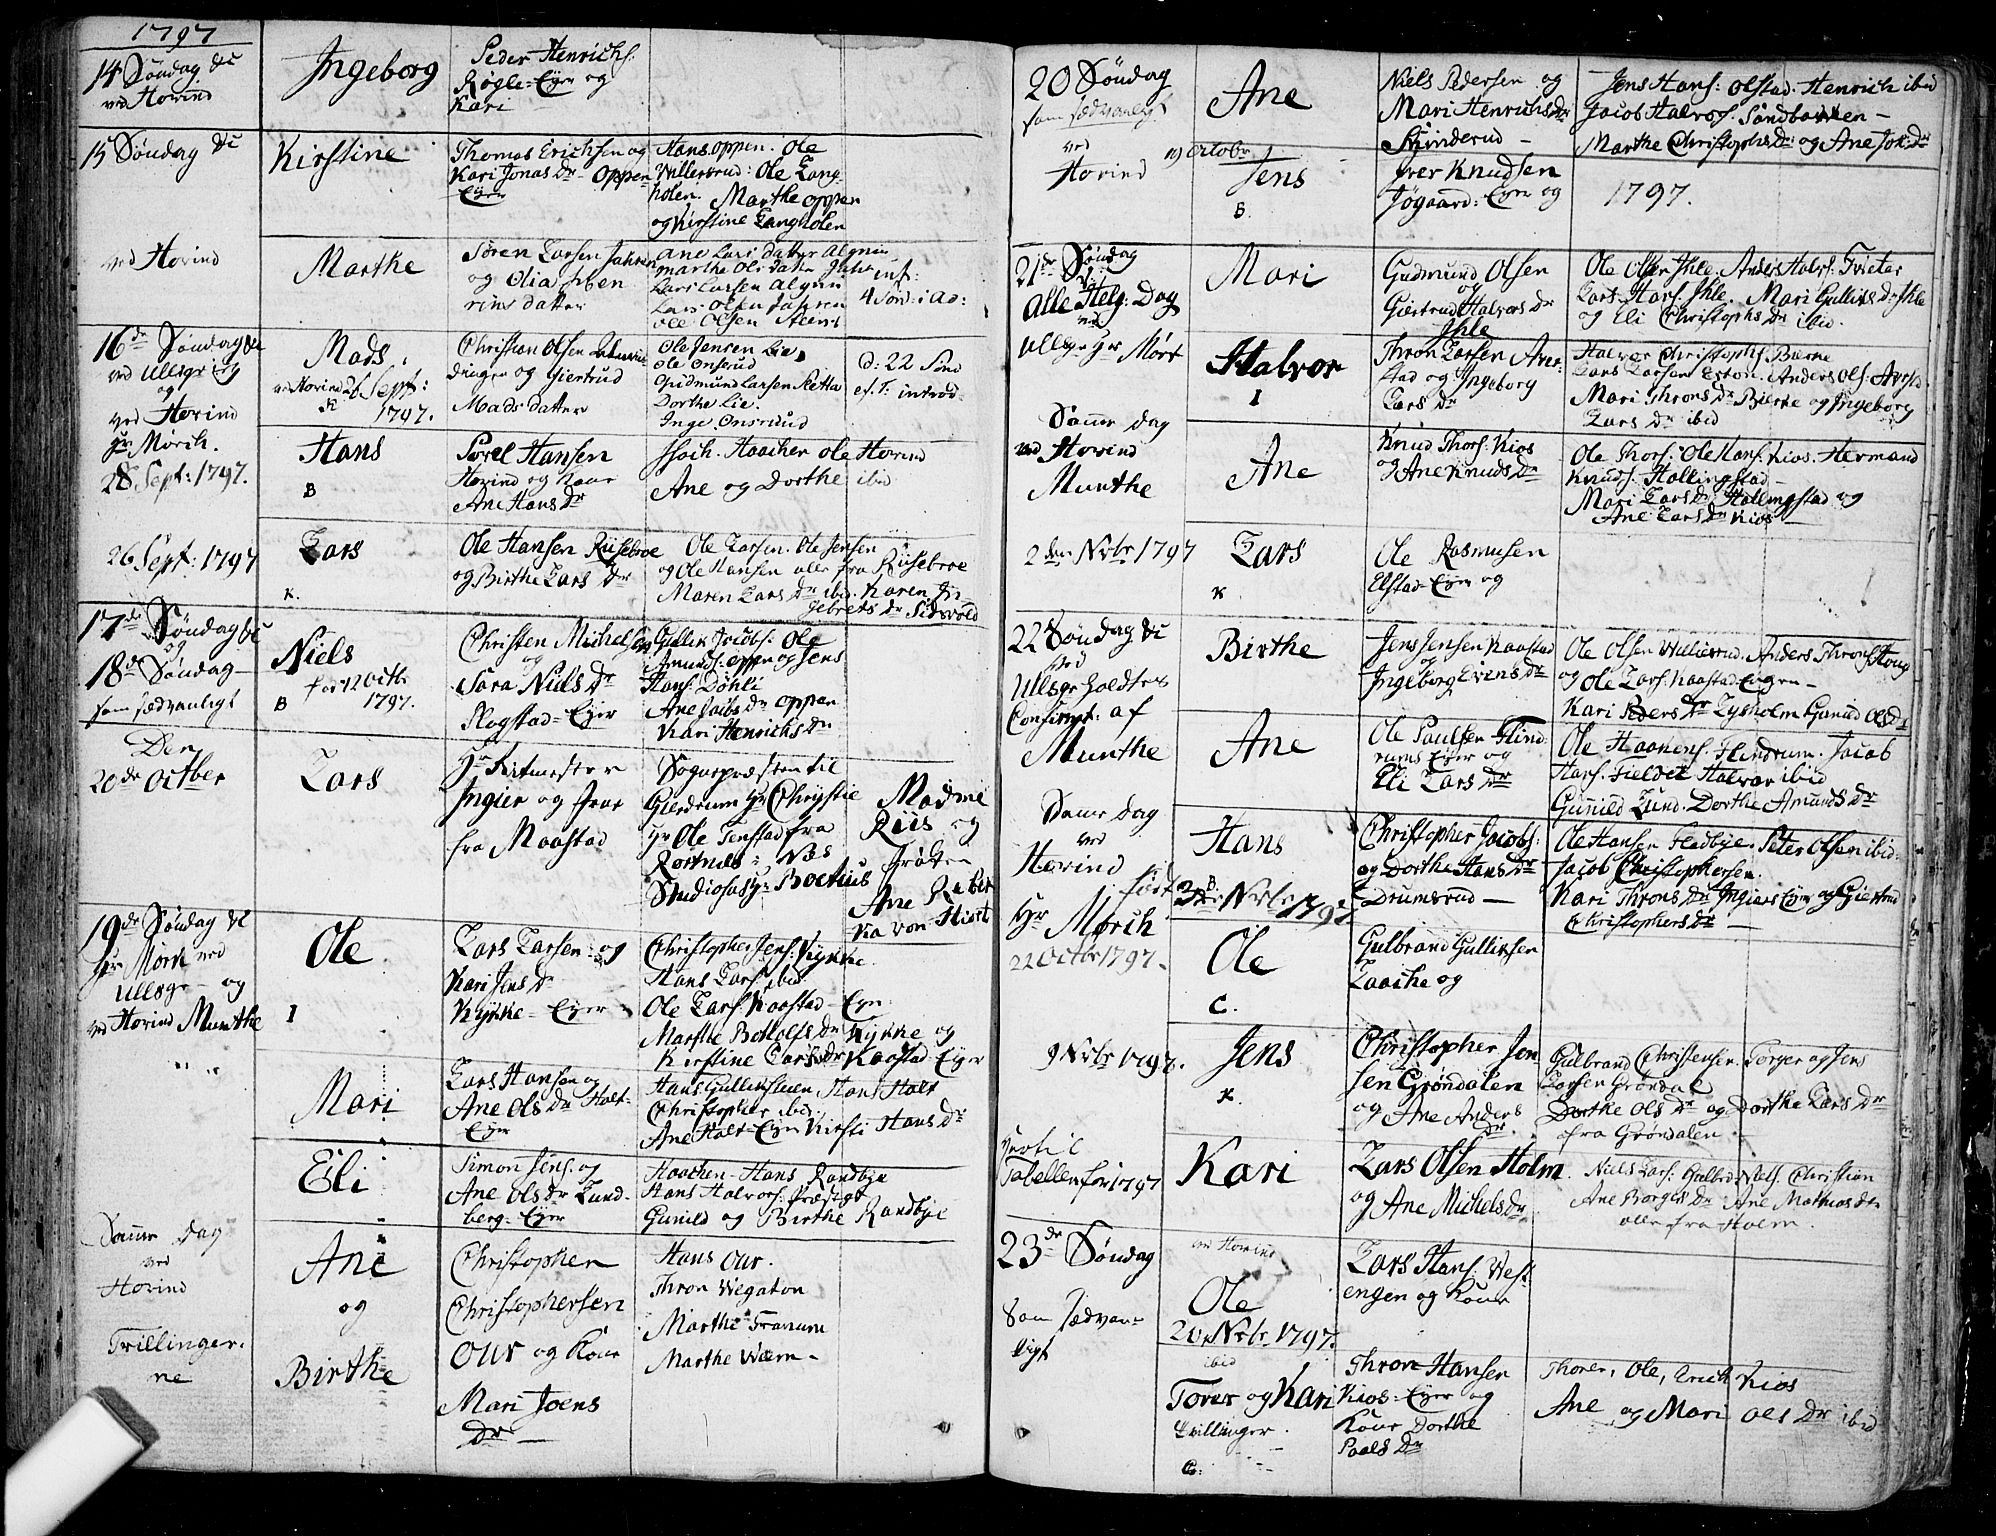 1797
14 Søndag &c
ved Hovind
Ingeborg
Peder Henrichs:
Røgle-Eyer og
Kari
15 Søndag &c
Kirstine
Thomas Erichsen og
Kari Jonas Dr Oppen
Eyer
Hans Oppen. Ole
Willersrud: Ole Lang-
holen. Marthe Oppen
og Kirstine Langholen
ved Hovind
Marthe
Søren Larsen Jahren
og Olia Iben
rins datter
Ane Lars datter Algnin
Marthe Ols datter Jahr
Lars Larsen Algnin
Lars Olsen Jahren
Ole Olsen
int:
4 Sønd: i Ad:
16de Søndag &c
ved Ullsgr Eyer
og
ved Hovind
Hr Mørch.
28 Sept: 1797.
Mads
ved Hovind 26 Sept:
1797.
Christian Olsen
dingen og Giertrud
Mads datter
Ole Jensen Lie
Ole Onsrud
Gudmund Larsen Retta
Dorthe Lie.
Inge Onsrud
d: 22 Sønd
ef. T: introd
Hans
B
Povel Hansen
Hovind og Kone
Ane Hans Dr
Hoch. Haachen Ole Hovind
Ane og Dorthe ibid
26 Sept: 1797
Lars
K.
Ole Hansen Riisebroe
og Birthe Lars Dr
Ole Larsen. Ole Jensen
og Ole Hansen alle fra Riisebroe
Maren Lars Dr ibid. Karen In-
gebrets Dr Sidsvold
17de Søndag &c
og
18de Søndag
som sædvanligt
Niels
født 12 Octbr
B 1797.
Christen Michelsen
og
Sara Niels Dr
Slogstad-Eyer
Gullik Jacobs: Ole
Amunds: Oppen og Jens
Hans: Døhli
Ane Jacobs Dr Oppen
Kari Henrichs Dr
Den
20de Octber
Lars
Hr Ritmester
Ingier og Frue
fra Maastad
Sognepræsten til
Gierdrum Hr Chrystie
Hr Ole Tenstad fra
Rotnæs NBs
Studiosus Hr Boetius
Madme
Riis og
Frøken
Ane Reber
ka von Hiort
19de Søndag &c
Hr Mørk ved
Ullsgr og
ved Hovind Munthe
Ole
I
Lars Larsen og
Kari Jens Dr
Kykke-Eyer
Christopher Jens: Kykke.
Hans Lars: ibid
Ole Lars: Kaastad-Eyr
Marthe Botolfs Dr Kykke og
Kirstine Lars Dr Kaastad Eyer
Mari
Lars Hansen og
Ane Ols Dr Holt-
Eyer
Hans Gulliksen Hans Holt
Christopher ibid
Ane Holt-Eyer Kirsti Hans Dr
Eli
Simon Jens: og
Ane Ols Dr Lund-
berg-Eyer
Haachen-Hans Randbye
Hans Halvors: Præstgr
Gunild og Birthe Randbye
Samme Dag
ved
Hovind
Trillinger-
ne
Ane
og
Birthe
Christopher
Christophersen
Our og Kone
Mari Joens
Dr
Hans Our.
Thron Wegaton
Marthe Tranum
Marthe Wærn
20 Søndag
som sædvanligt
ved
Hovind
Ane
Niels Pedersen og
Mari Henrichs Dr
Skinderud
Jens Hans: Olstad. Henrich ibid
Jacob Halvors: Søndbakken
Marthe Christophs Dr og Ane Jok: Dr
19 Octobr
Jens
B.
Iver Knudsen
Jøgaard-Eyer og
1797.
21de Søndag
&c
Alle Helg: Dag
ved
Ullsgr Hr Mørk
Mari
Gudmund Olsen
og
Giertrud Halvors Dr
Ihle
Ole Olsen Ihle. Anders Halvs: Tveter
Lars Hans: Ihle. Mari Gulliks Dr Ihle
og Eli Christophs Dr ibid.
Halvor
I
Thron Larsen Aver-
stad og Ingeborg
Lars Dr
Halvor Christophs: Bierke
Lars Larsen Eston. Anders Ols: Avrstd
Mari Throns Dr Bierke og Ingeborg
Lars Dr ibid
Samme Dag
ved Hovind
Munthe
Ane
Knud Thors: Kios
og Ane Knuds Dr
Ole Thors: Ole Hans: Kios. Hermand
Knuds: Hallingstad
Mari Lars Dr Hallingstad og
Ane Lars Dr Kios
2den Nvbr 1797
Lars
K
Ole Rasmusen
Elstad-Eyer og
22 Søndag &c
ved
Ullsgr holdtes
Confirmt: af
Munthe
Birthe
Jens Jensen Kaastad
og
Ingeborg Evens Dr
Ole Olsen Willersrud. Anders Throns: Houg
og Ole Lars: Kaastad-Eygen
Kari Peders Dr Lysholm Gunild Olsd
Ane
Ole Paulsen Flind-
rums Eyer og
Eli Lars Dr
Ole Haanens: Flindrum. Jacob
Hans: Fieldet Halvor ibid
Gunild Lund. Dorthe Amunds Dr
Samme Dag
ved
Hovind
Hr Mørch
22 Octbr 1797
Hans
B.
født
3de Nvbr 1797
Christopher Jacobs:
og Dorthe Hans Dr
Drumsrud
Ole Hansen Fladbye. Peter Olsen ibid.
Jacob Christophersen
Kari Throns Dr Ingiers Eyer og Giertrud
Christophers Dr
Ole
C.
Gulbrand Gulliksen
Laache og
9 Nvbr 1797.
Jens
K.
Christopher Jen
sen Grøndalen
og Ane Anders
Dr.
Gulbrand Christensen. Torger og Jens
Larsen Grøndal
Dorthe Ols Dr og Dorthe Lars Dr
fra Grøndalen
Hertil
Tabellen for 1797
Kari
Lars Olsen Holm.
og Ane Michels Dr
Niels Lars: Gulbr: Niels: Christian
Ane Borgers Dr Ane Mathias Dr
alle fra Holm.
23de Søndag
Som sædvan-
ligt
ved Hovind
Ole
20 Nvbr 1797.
Lars Hans: Vest
engen og Kone
ibid
Torer og Kari
tvillinger.
C:
Thron Hansen
Kios-Eyer og
Kone Dorthe
Poels Dr
Thorer, Ole, Erich Kios
Ane og Mari Ols Dr ibid